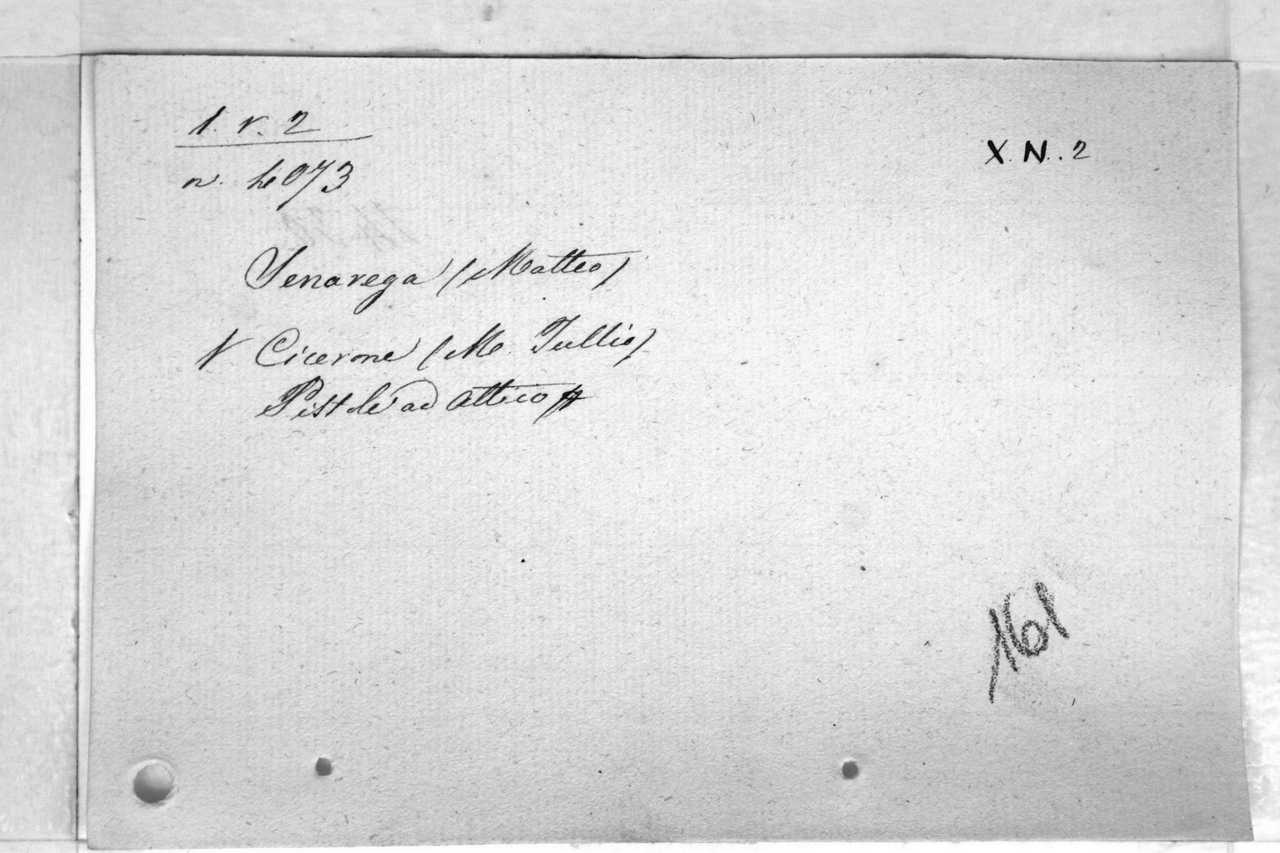 1. v. 2
X. N. 2
n. 4073
Senarega (Matteo)
V Cicerone (M. Tullio)
Pistole ad Attico
161